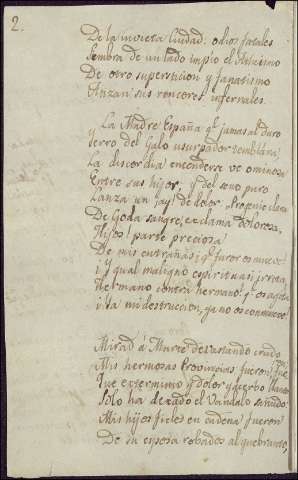 2.
De la invicta Ciudad: odios fatales
Siembra de un lado impio el Ateismo
De otro supersticion y fanatismo
Atizan sus rencores infernales.
La Madre España q.e jamas al duro
Yerro del Galo usurpador temblára,
La discordia encenderse ve ominosa
Entre sus hijos; y del seno puro
Lanza un ¡ay! de dolor. Progenie clara
De Goda sangre, exclama dolorosa,
Hijos! parte preciosa
De mis entrañas ¡q.e furor os mueve!
¡Y qual maligno espiritu is irrita,
Hermano contra hermano! q.e os agita
¡Ya mi destruccion, ya no os conmueve!
Mirad á Marte devastando crudo
Mis hermosas Provincias
Que exterminio y dolor y acerbo llanto
Solo ha dexado el Vandalo sañudo
Mis hijos fieles en cadena fueron
De su esposa robados al quebranto,